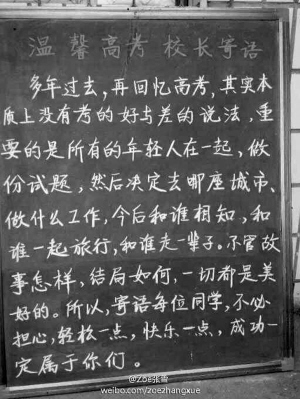 温馨高考 校长寄语
多年过去,再回忆高考,其实本
质上没有考的好与差的说法,重
要的是所有的年轻人在一起,做
份试题,然后决定去哪座城市、
做什么工作,今后和谁相知,和
谁一起旅行,和谁走一辈子。不管故
事怎样,结局如何,一切都是美
好的。所以,寄语每位同学,不必
担心,轻松一点,快乐一点,成功一
定属于你们。
weibo.com/zoezhangxue